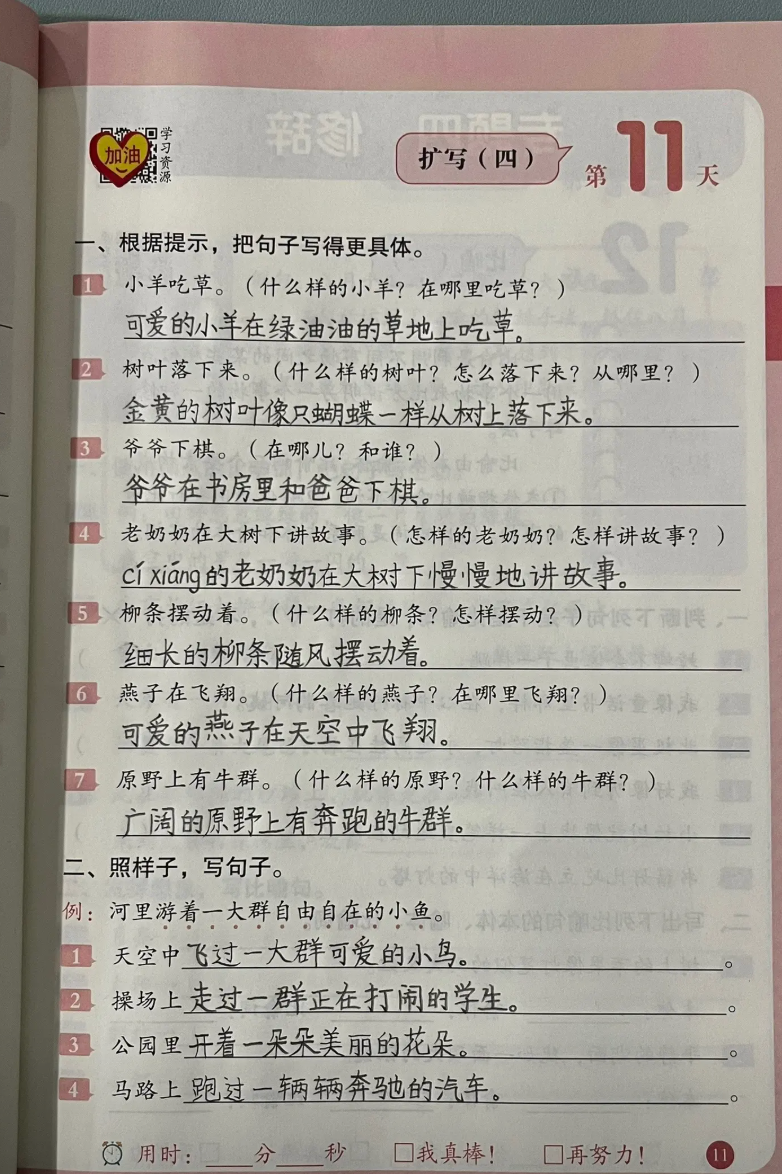 加油
学习资源
扩写（四）
第11天
一、根据提示，把句子写得更具体。
1 小羊吃草。（什么样的小羊？在哪里吃草？）
可爱的小羊在绿油油的草地上吃草。
2 树叶落下来。（什么样的树叶？怎么落下来？从哪里？）
金黄的树叶像只蝴蝶一样从树上落下来。
3 爷爷下棋。（在哪儿？和谁？）
爷爷在书房里和爸爸下棋。
4 老奶奶在大树下讲故事。（怎样的老奶奶？怎样讲故事？）
cí xiáng的老奶奶在大树下慢慢地讲故事。
5 柳条摆动着。（什么样的柳条？怎样摆动？）
细长的柳条随风摆动着。
6 燕子在飞翔。（什么样的燕子？在哪里飞翔？）
可爱的燕子在天空中飞翔。
7 原野上有牛群。（什么样的原野？什么样的牛群？）
广阔的原野上有奔跑的牛群。
二、照样子，写句子。
例：河里游着一大群自由自在的小鱼。
1 天空中飞过一大群可爱的小鸟。。
2 操场上走过一群正在打闹的学生。。
3 公园里开着一朵朵美丽的花朵。。
4 马路上跑过一辆辆奔驰的汽车。。
用时：____分____秒 □我真棒！ □再努力！ 11